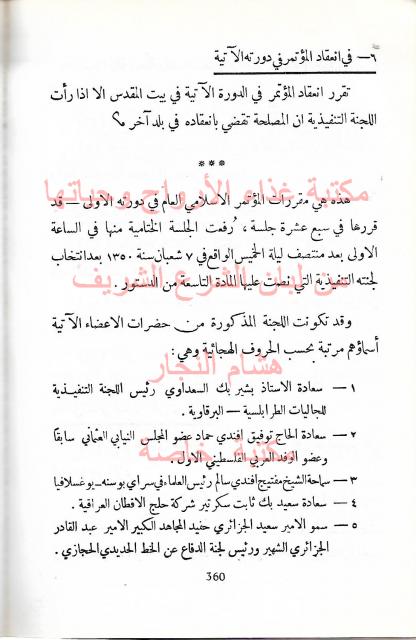 ٦ — في انعقاد المؤتمر في دورته الآتية
تقرر انعقاد المؤتمر في الدورة الآتية في بيت المقدس الا اذا رأت
اللجنة التنفيذية ان المصلحة تقضي بانعقاده في بلد آخر
***
مكتبة غذاء الأرواح وحياتها
هذه هي مقررات المؤتمر الاسلامي العام في دورته الاولى — قد
قررها في سبع عشرة جلسة ، رُفعت الجلسة الختامية منها في الساعة
الاولى بعد منتصف ليلة الخميس الواقع في ٧ شعبان سنة ١٣٥٠ بعد انتخاب
من لبان الشرع الشريف
لجنته التنفيذية التي نصت عليها المادة التاسعة من الدستور .
وقد تكونت اللجنة المذكورة من حضرات الاعضاء الآتية
أسماؤهم مرتبة بحسب الحروف الهجائية وهي :
هشام النجار
١ — سعادة الاستاذ بشير بك السعداوي رئيس اللجنة التنفيذية
للجاليات الطرابلسية — البرقاوية .
٢ — سعادة الحاج توفيق افندي حماد عضو المجلس النيابي العثماني سابقا
وعضو الوفد العربي الفلسطيني الاول .
مكتبة خاصة
٣ — سماحة الشيخ مفتيج افندي سالم رئيس العلماء في سراي بوسنه — يوغسلافيا
٤ — سعادة سعيد بك ثابت سكرتير شركة حلج الاقطان العراقية .
٥ — سمو الامير سعيد الجزائري حفيد المجاهد الكبير الامير عبد القادر
الجزائري الشهير ورئيس لجنة الدفاع عن الخط الحديدي الحجازي .
360